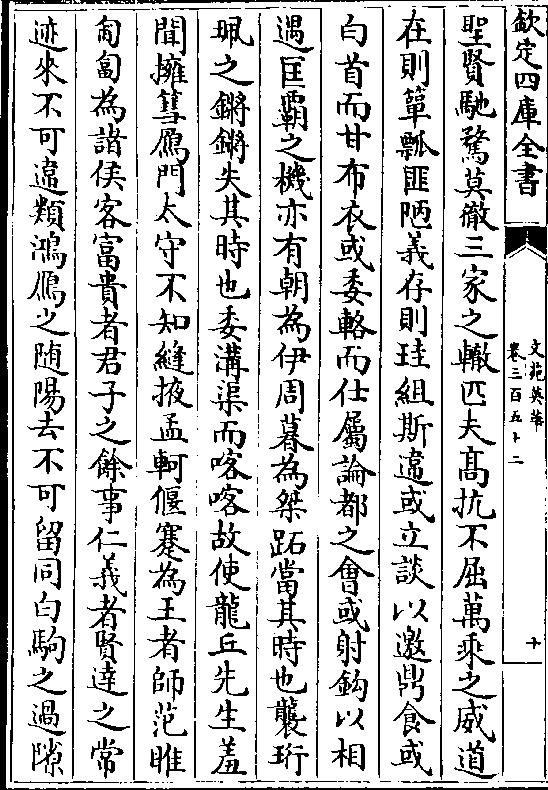 欽定四庫全書
文苑英華
卷三百五十二
十
聖賢馳騖莫徹三家之轍匹夫髙抗不屈萬乘之威道
在則簞瓢匪陋義存則珪組斯遠或立談以邀鼎食或
白首而甘布衣或委輅而仕屬論都之會或射鈎以相
遇匡霸之機亦有朝為伊周暮為桀跖當其時也襲珩
珮之鏘鏘失其時也委溝渠而喀喀故使龍丘先生羞
聞擁篲鴈門太守不知縫掖孟軻偃蹇為王者師范睢
匍匐為諸侯客富貴者君子之餘事仁義者賢達之常
迹來不可違類鴻鴈之随陽去不可留同白駒之過隙